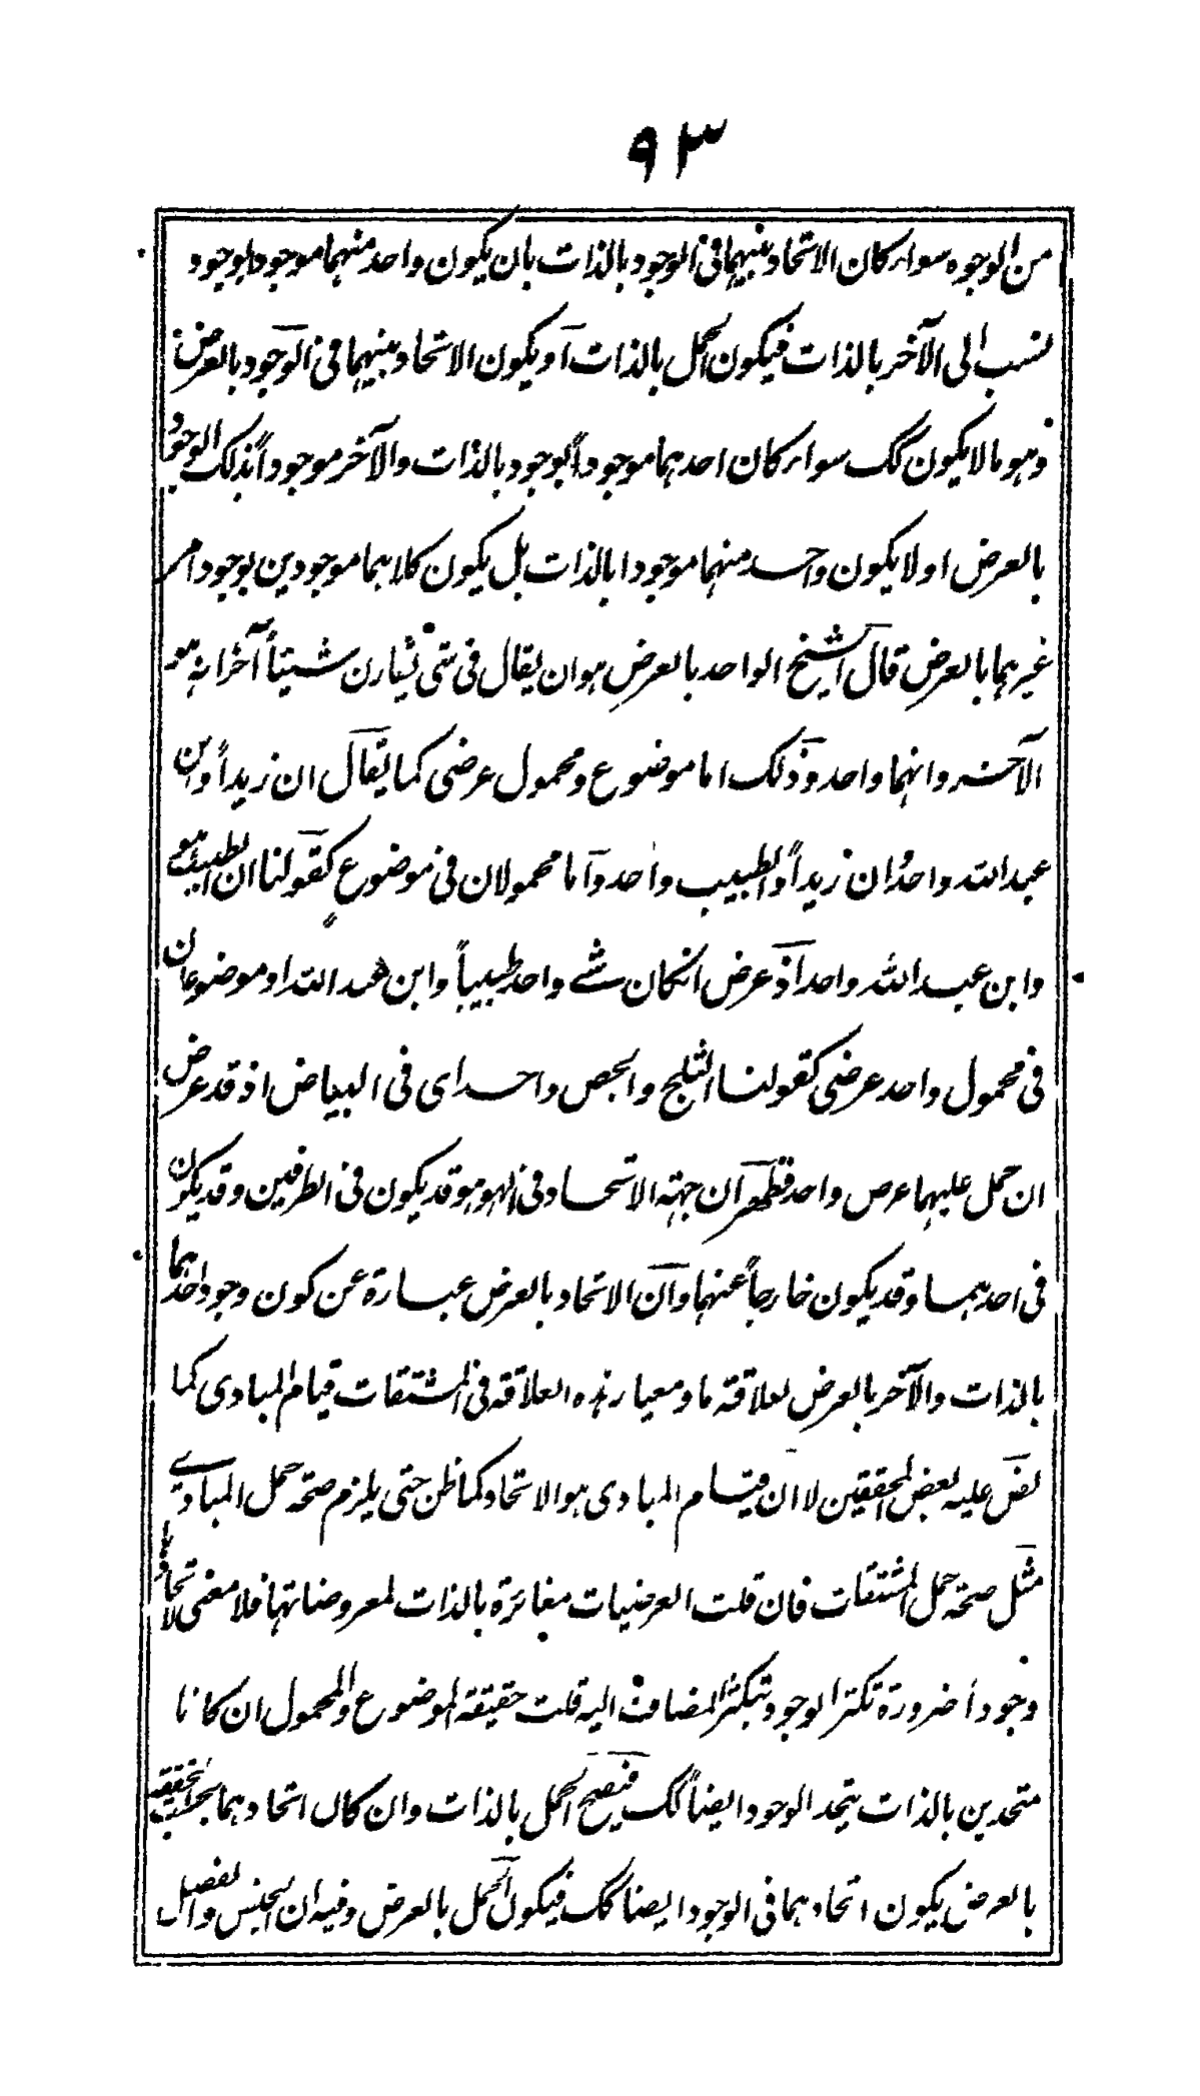 ٩٣
من الوجوه سواء كان الاتحاد بينهما فى الوجود بالذات بان يكون واحد منهما موجودا بوجود
نسب الى الآخر بالذات فيكون الحمل بالذات او يكون الاتحاد بينهما فى الوجود بالعرض
وهو ما لا يكون كك سواء كان احدهما موجوداً بوجود بالذات والآخر موجوداً بذلك الوجود
بالعرض او لا يكون واحد منهما موجودا بالذات بل يكون كلاهما موجودين بوجود امر
غيرهما بالعرض قال الشيخ الواحد بالعرض هو ان يقال فى شئ يقارن شيئاً آخر انه هو
الآخر وانهما واحد وذلك اما موضوع ومحمول عرضى كما يقال ان زيداً وابن
عبد الله واحد وان زيداً والطبيب واحد واما محمولان فى موضوع كقولنا ان الطبيب هو
وابن عبد الله واحد اذ عرض ان كان شے واحد طبيباً وابن عبد الله او موضوعان
فى محمول واحد عرضى كقولنا الثلج والجص واحد اى فى البياض اذ قد عرض
ان حمل عليهما عرض واحد فظهر ان جهة الاتحاد فى الهوهو قد يكون فى الطرفين وقد يكون
فى احدهما وقد يكون خارجاً عنهما وان الاتحاد بالعرض عبارة عن كون وجود احدهما
بالذات والآخر بالعرض لعلاقة ما ومعيار هذه العلاقة فى المشتقات قيام المبادى كما
نص عليه بعض المحققين لا ان قيام المبادى هو الاتحاد كما ظن حتى يلزم صحة حمل المبادے
مثل صحة حمل المشتقات فان قلت العرضيات مغائرة بالذات لمعروضاتها فلا معنى لاتحادها
وجوداً ضرورة تكثر الوجود بتكثر المضاف اليه قلت حقيقة الموضوع والمحمول ان كانا
متحدين بالذات يتحد الوجود ايضاً كك فيصح الحمل بالذات وان كان اتحادهما بحسب الحقيقة
بالعرض يكون اتحادهما فى الوجود ايضا كك فيكون الحمل بالعرض وفيه ان الجنس والفصل